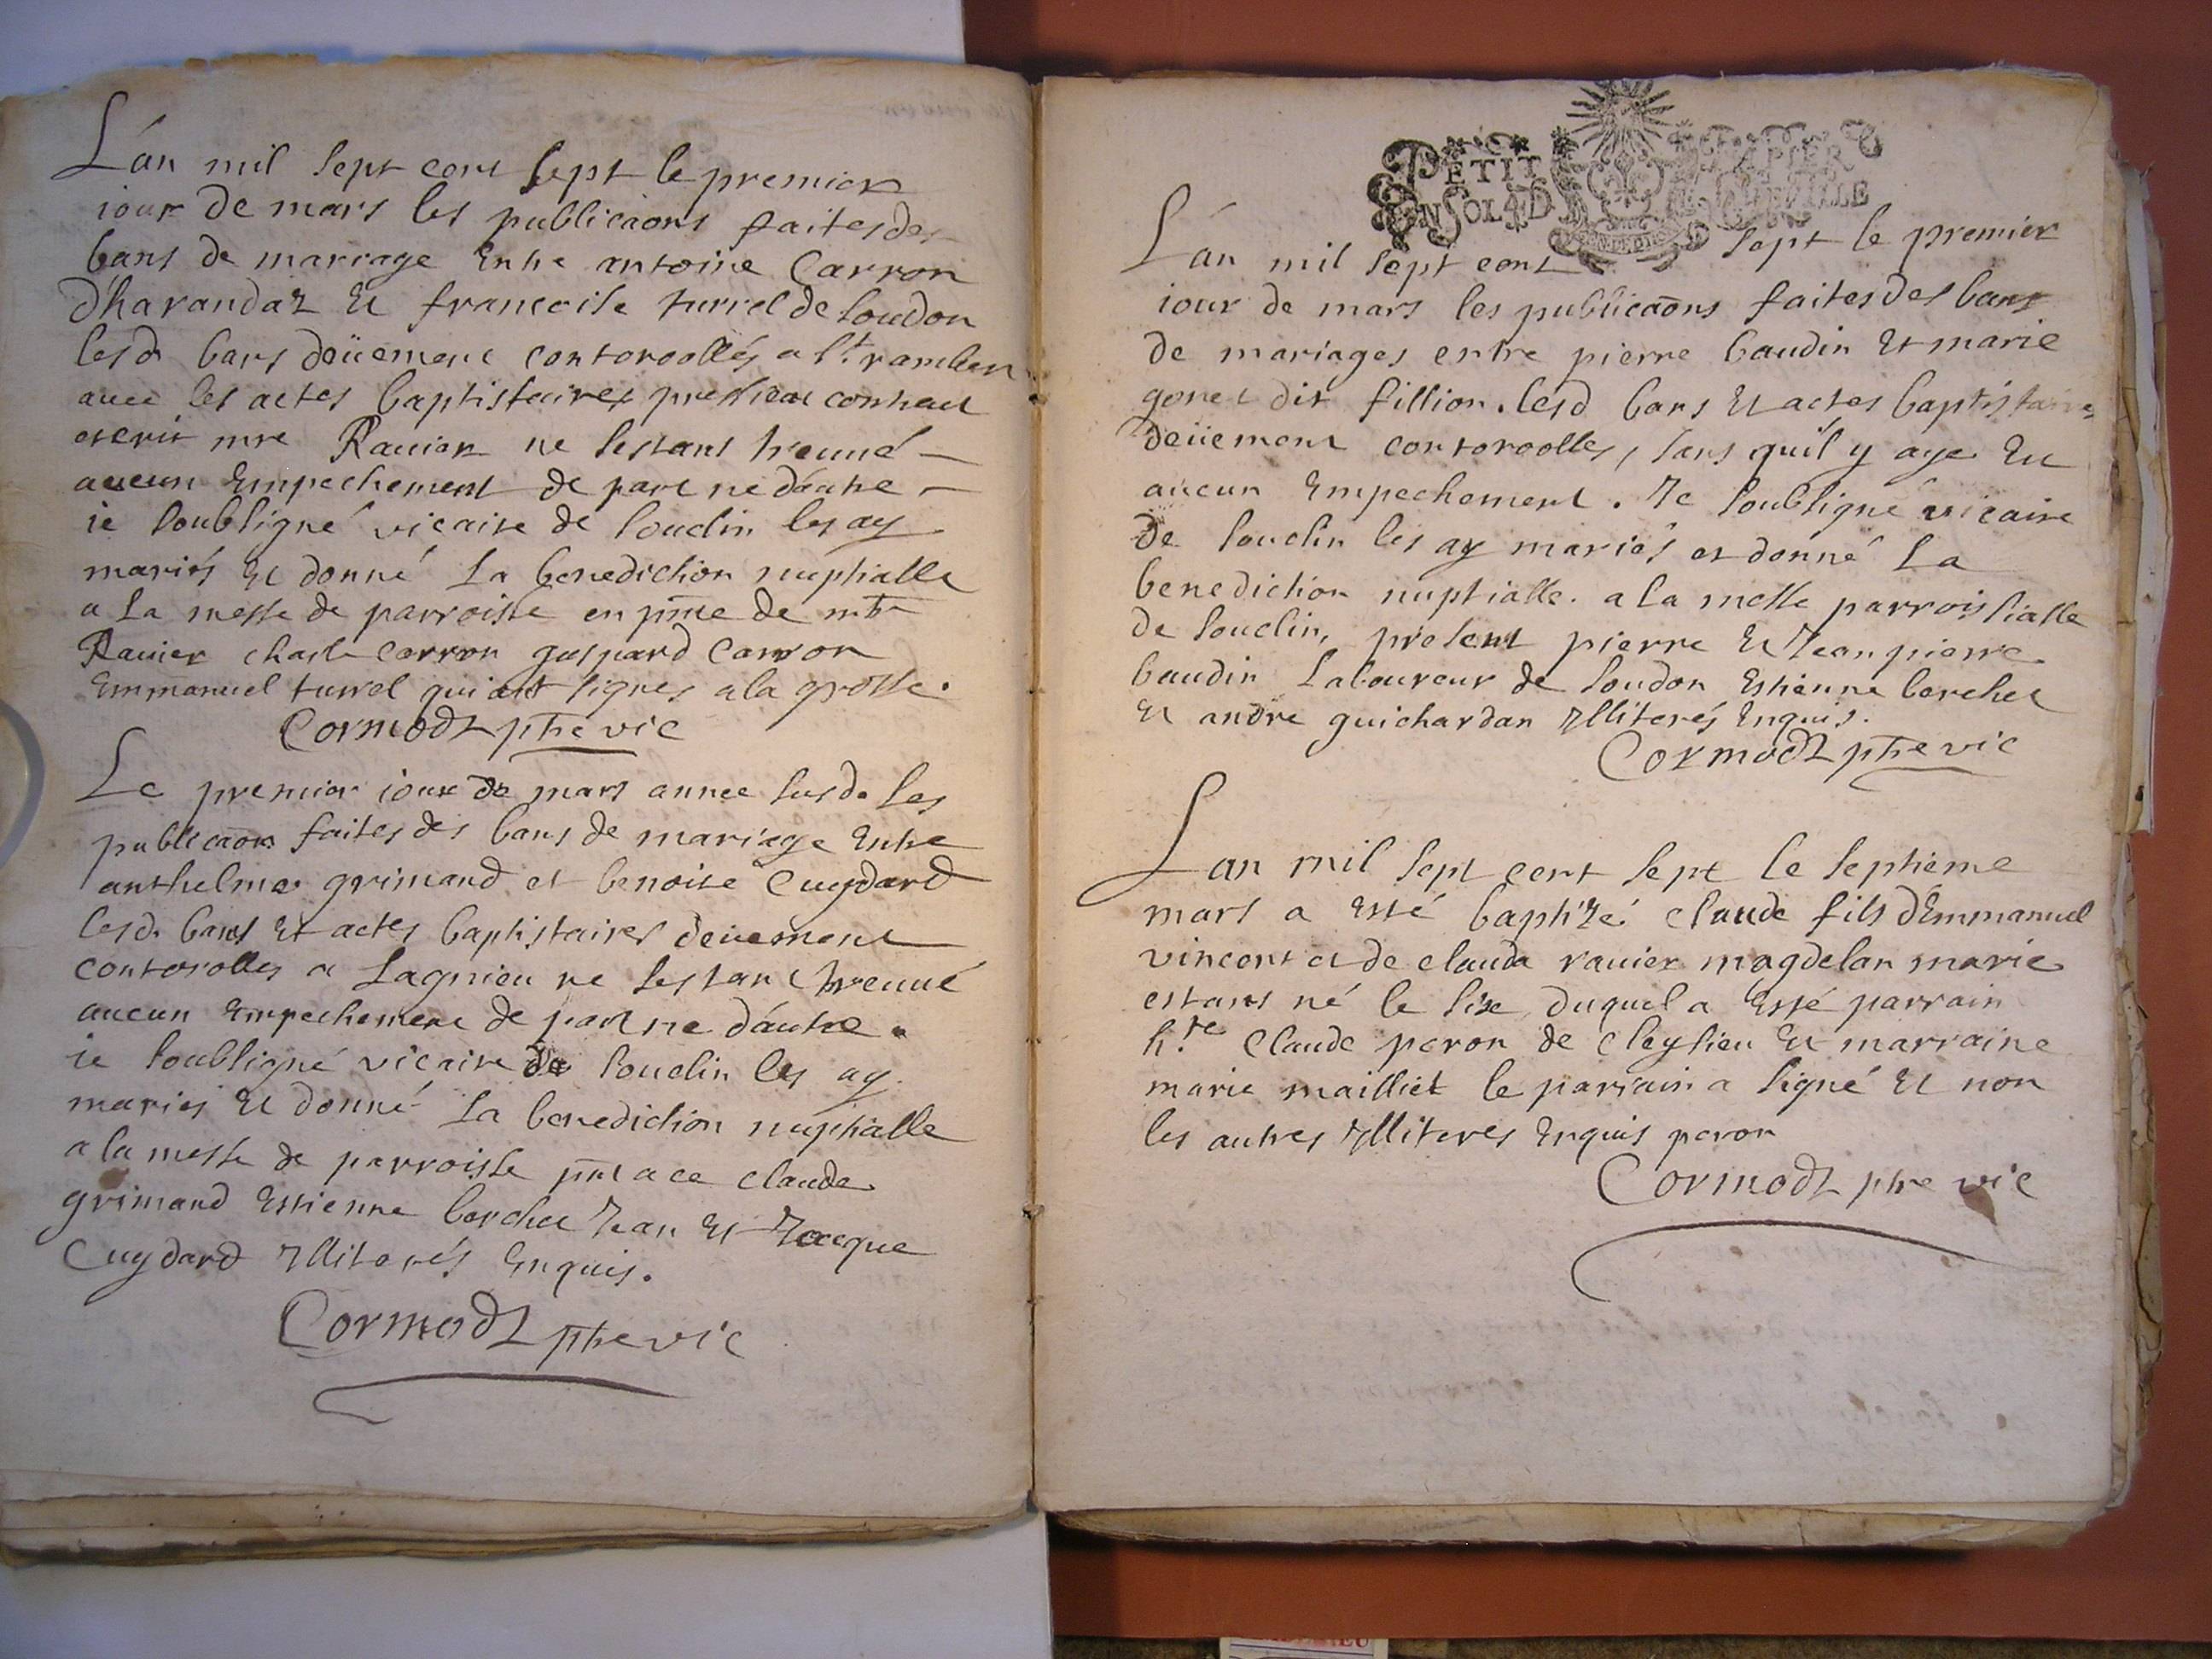 L'an mil sept cent sept le premier
iour de mars les publicaons faites des
bans de mariage entre antoine Carron
d'harandaz et francoise turrel de soudon
lesd bans deüement contoroollés a st. rambert
avec les actes baptistaires contract
mre Ravier ne sestant treuué
aucun empechement de part ne dáutre
ie soubsigné vicaire de souclin les ay
mariés et donné la benediction nuptialle
a la messe de parroisse en pnce de mre
Ravier charle carron gaspard carron
Emmanuel turrel qui ont signés a la grosse.
Cormodz ptre vic
Le premier iour de mars annee susd. les
publicaons faites des bans de mariage entre
anthelme grimand et benoite Cuydard
lesd. bans et actes baptistaires deüement
contorolles a Lagnieu ne sestant treuué
aucun empechement de part ne dáutre.
ie soubsigné vicaire de souclin les ay
mariés et donné la benediction nuptialle
a la messe de parroisse pnt a ce claude
grimand estienne berchet Jean et Jacque
Cuydard Illiterés enquis.
Cormodz ptre vic
PETIT PAPIER
EN SOL 4 D
L'án mil sept cent sept le premier
iour de mars les publicaons faites des bans
de mariages entre pierre baudin et marie
genet dit fillion. lesd bans et actes baptistaires
deüement contoroolles, sans quil y aye eu
aucun empechement. Je soubsigné vicaire
de souclin les ay mariés et donné la
benediction nuptialle. a la messe parroissialle
de souclin, present pierre et Jean pierre
baudin laboureur de soudon estienne berchet
et andre guichardan Illiterés enquis.
Cormodz ptre vic
L'an mil sept cent sept le septieme
mars a esté baptizé claude fils d'Emmanuel
vincent et de clauda ravier magdelan marie
estans né le sixe duquel a esté parrain
h.te Claude peron de cleyzieu et marraine
marie mailliet le parrain a signé et non
les autres Illiteres enquis peron
Cormodz ptre vic